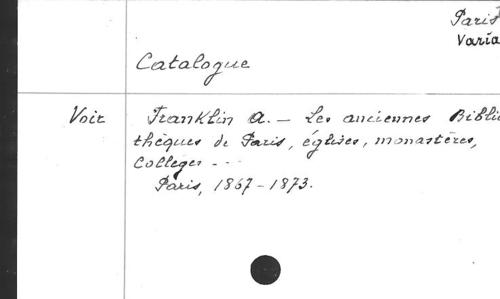 Paris
Varia
Catalogue
Voir Franklin A. – Les anciennes Biblio
thèques de Paris, églises, monastères,
Colleges ...
Paris, 1867-1873.